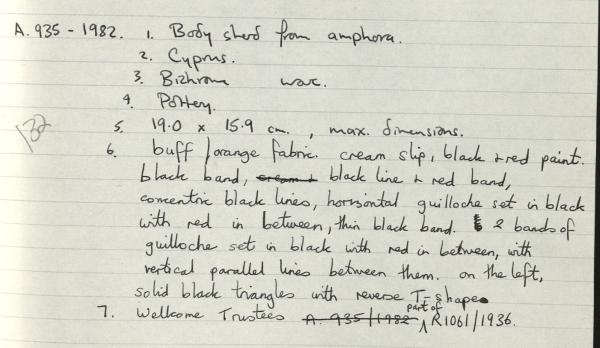 A.935 - 1982. 1. Body sherd from amphora.
2. Cyprus.
3. Bichrome ware.
4. Pottery.
132
5. 19.0 x 15.9 cm., max. dimensions.
6. buff/orange fabric. cream slip, black + red paint.
black band, cream + black line + red band,
concentric black lines, horizontal guilloche set in black
with red in between, thin black band. 2 bands of
guilloche set in black with red in between, with
vertical parallel lines between them. on the left,
solid black triangles with reverse T-shape.
7. Wellcome Trustees A.935/1982 part of R1061/1936.